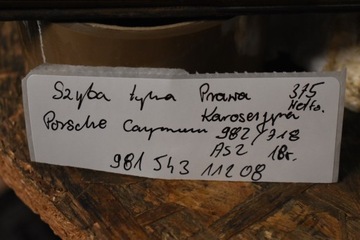 Szyba tylna Prawa 375
Netto.
Karoseryjna
Porsche Caymann 982/718
AS2 1Br.
981 543 112 08